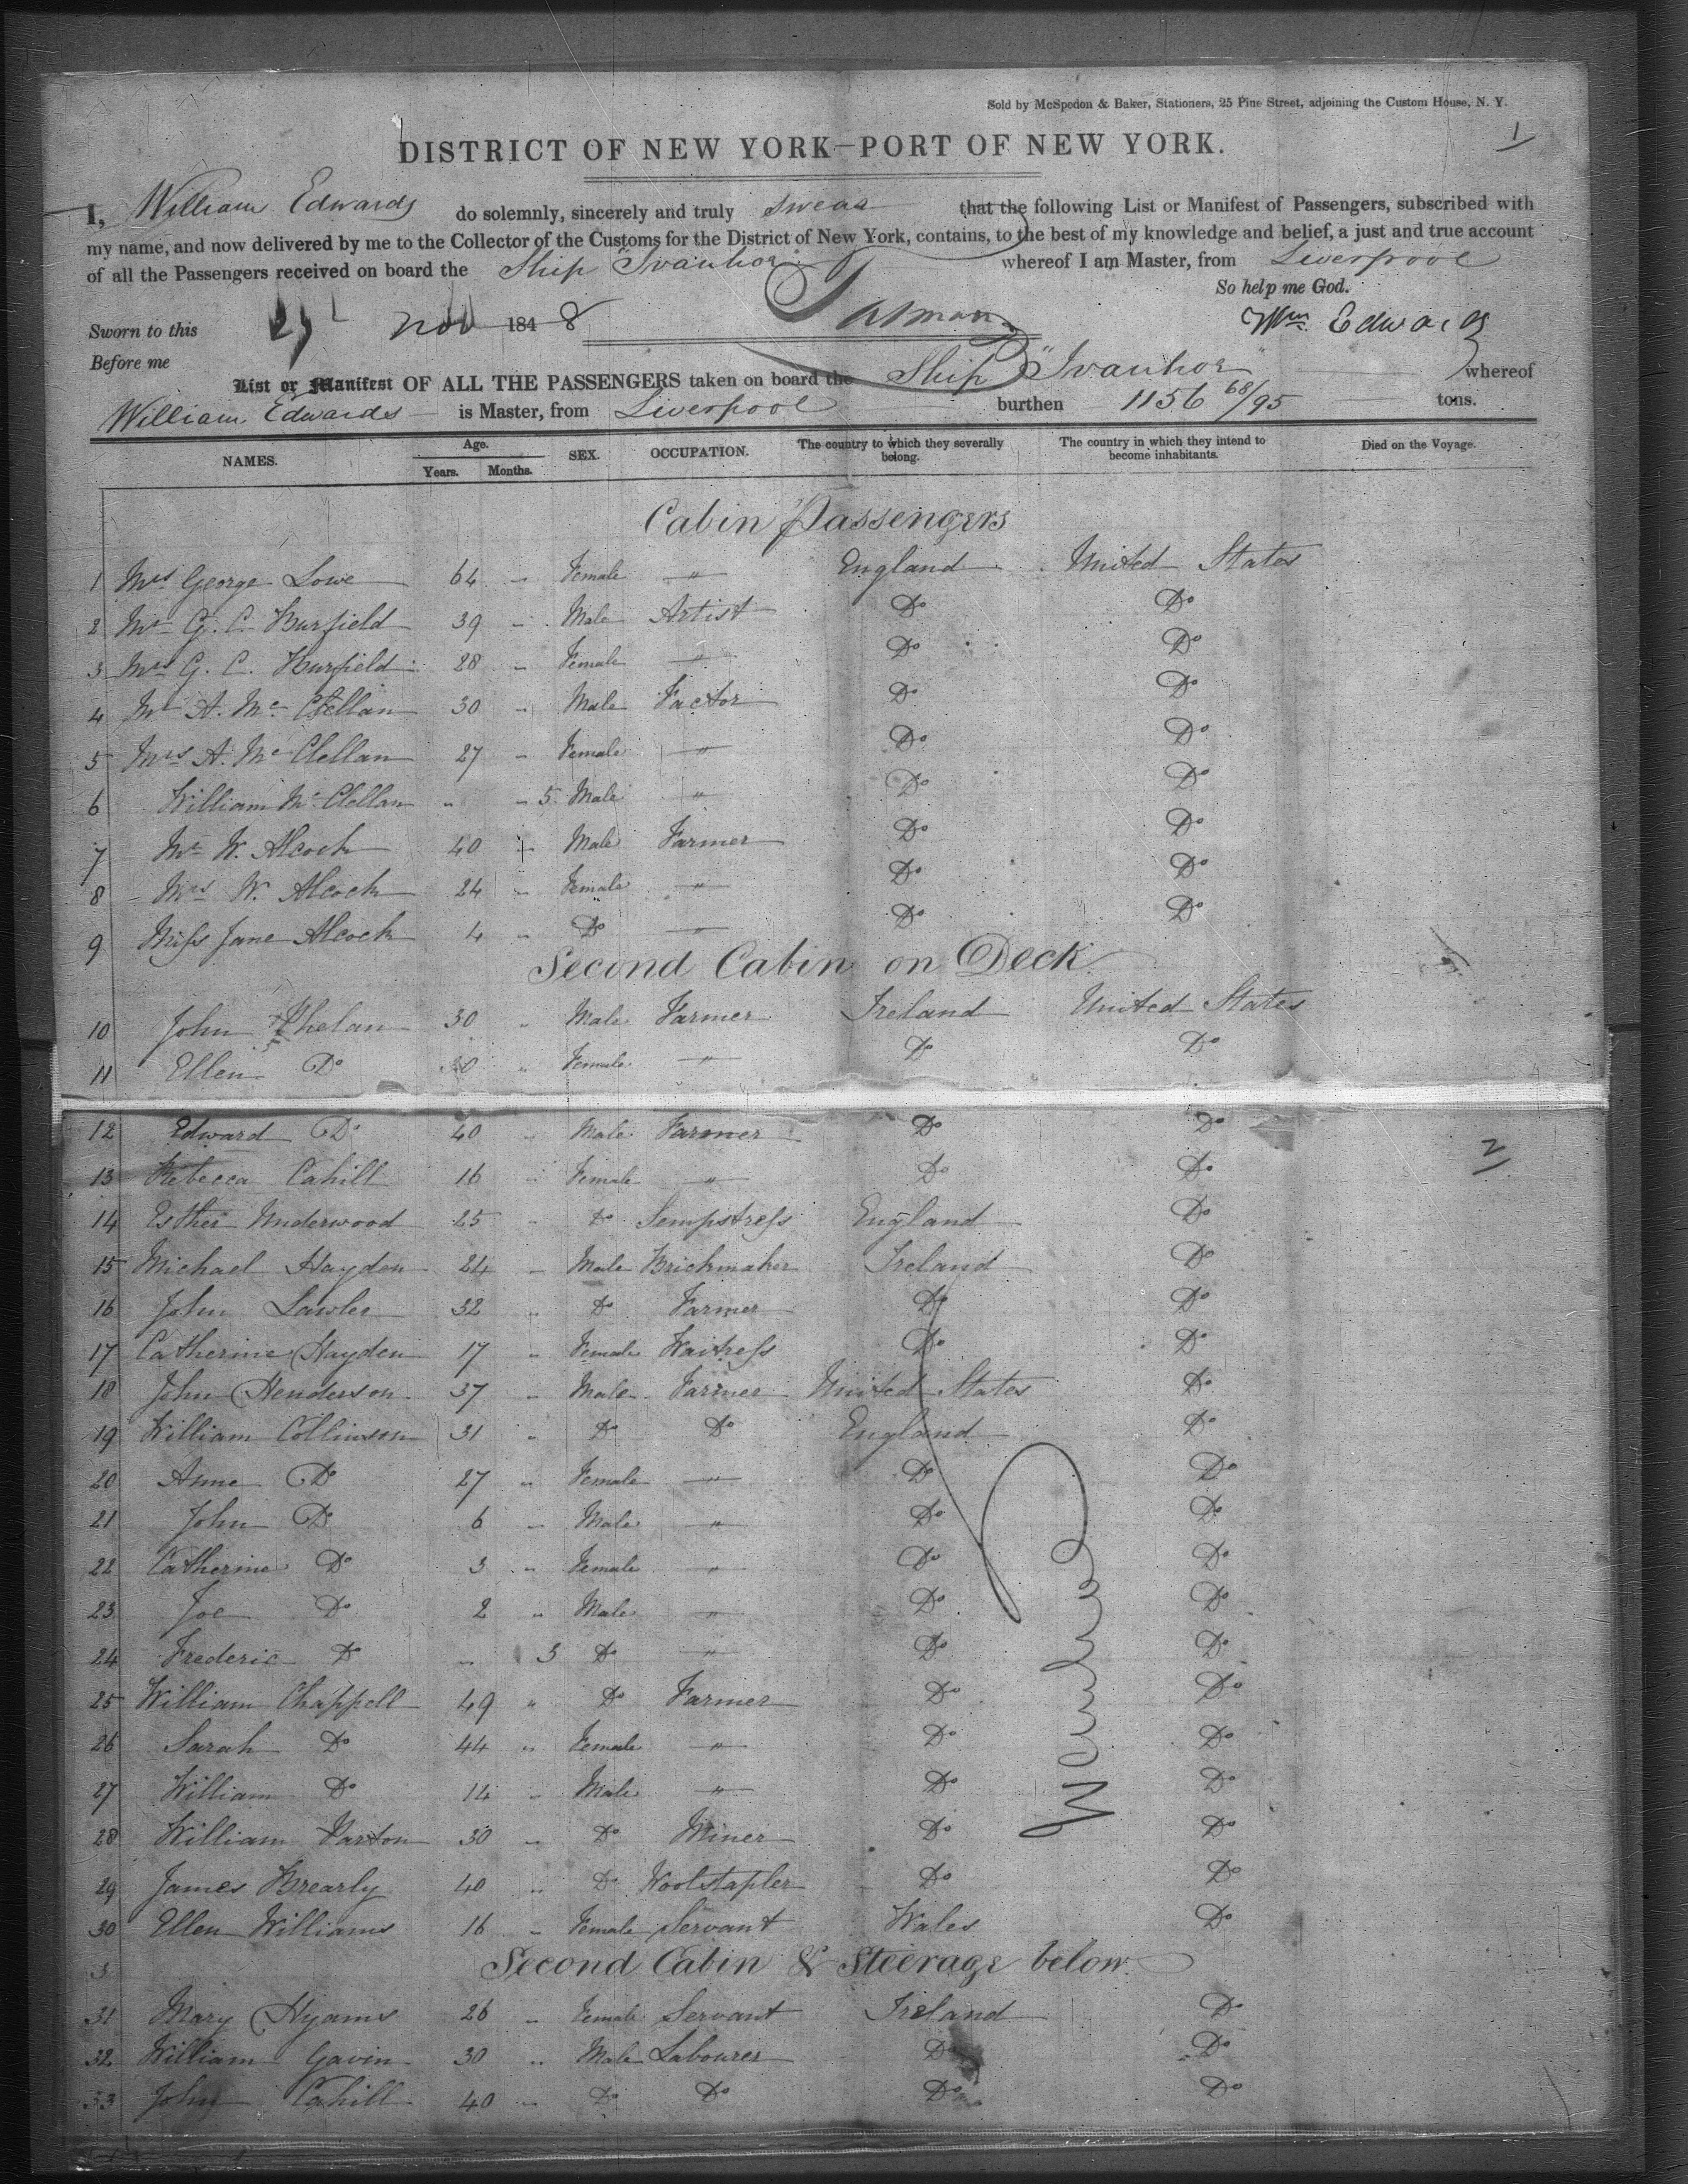 Sold by McSpedon & Baker, Stationers, 25 Pine Street, adjoining the Custom House, N. Y.
1
DISTRICT OF NEW YORK—PORT OF NEW YORK.
I, William Edwards do solemnly, sincerely and truly swear that the following List or Manifest of Passengers, subscribed with
my name, and now delivered by me to the Collector of the Customs for the District of New York, contains, to the best of my knowledge and belief, a just and true account
of all the Passengers received on board the Ship Ivanhoe whereof I am Master, from Liverpool
So help me God.
Sworn to this nov 1848 Wm Edwards
Before me
List or Manifest OF ALL THE PASSENGERS taken on board the Ship "Ivanhoe" whereof
William Edwards is Master, from Liverpool burthen 1156 68/95 tons.
NAMES. Age. Years. Months. SEX. OCCUPATION. The country to which they severally belong. The country in which they intend to become inhabitants. Died on the Voyage.
Cabin Passengers
1 Mrs George Lowe 64 " Female " England United States
2 Mr G. C. Burfield 39 " Male Artist Do Do
3 Mrs G. C. Burfield 28 " Female " Do Do
4 Mr A. Mc Clellan 30 " Male Factor Do Do
5 Mrs A. Mc Clellan 27 " Female " Do Do
6 William Mc Clellan " 5 Male " Do Do
7 Mr W. Alcock 40 " Male Farmer Do Do
8 Mrs W. Alcock 24 " Female " Do Do
9 Miss Jane Alcock 4 " Do " Do Do
Second Cabin on Deck
10 John Phelan 30 " Male Farmer Ireland United States
11 Ellen Do 30 " Female " Do Do
12 Edward Do 40 " Male Farmer Do Do
2
13 Rebecca Cahill 16 " Female " Do Do
14 Esther Underwood 25 " Do Sempstress England Do
15 Michael Hayden 24 " Male Brickmaker Ireland Do
16 John Lawler 32 " Do Farmer Do Do
17 Catherine Hayden 17 " Female Waitress Do Do
18 John Henderson 37 " Male Farmer United States Do
19 William Collinson 31 " Do Do England Do
20 Anne Do 27 " Female " Do Do
21 John Do 6 " Male " Do Do
22 Catherine Do 3 " Female " Do Do
23 Joe Do 2 " Male " Do Do
24 Frederic Do " 3 Do " Do Do
25 William Chappell 49 " Do Farmer Do Do
26 Sarah Do 44 " Female " Do Do
27 William Do 14 " Male " Do Do
28 William Parton 30 " Do Miner Do Do
29 James Brearly 40 " Do Woolstapler Do Do
30 Ellen Williams 16 " Female Servant Wales Do
Second Cabin & Steerage below
31 Mary Hyams 26 " Female Servant Ireland Do
32 William Gavin 30 " Male Labourer Do Do
33 John Cahill 40 " Do Do Do Do